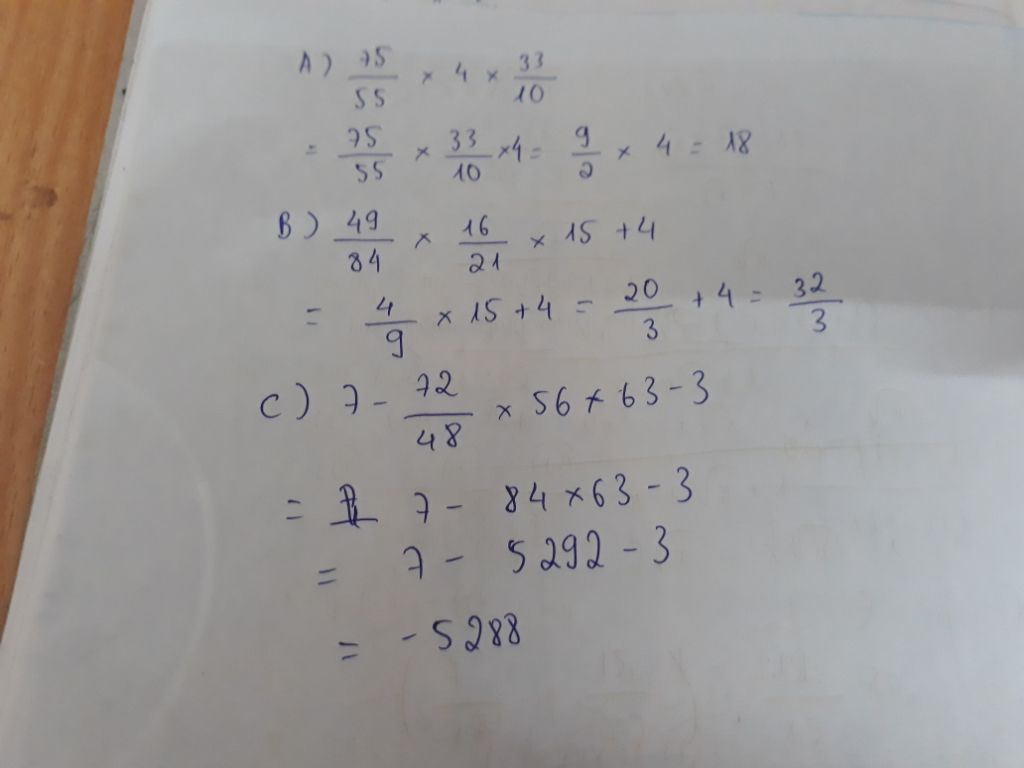 A) 75/55 × 4 × 33/10
= 75/55 × 33/10 ×4 = 9/2 × 4 = 18
B) 49/84 × 16/21 × 15 + 4
= 4/9 × 15 + 4 = 20/3 + 4 = 32/3
C) 7 - 72/48 × 56 × 63 - 3
= 7 - 84 × 63 - 3
= 7 - 5292 - 3
= - 5288